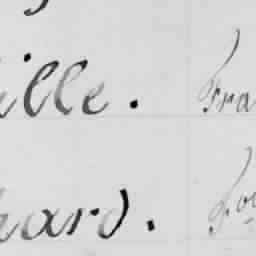 ille. Fra
hard. Fou